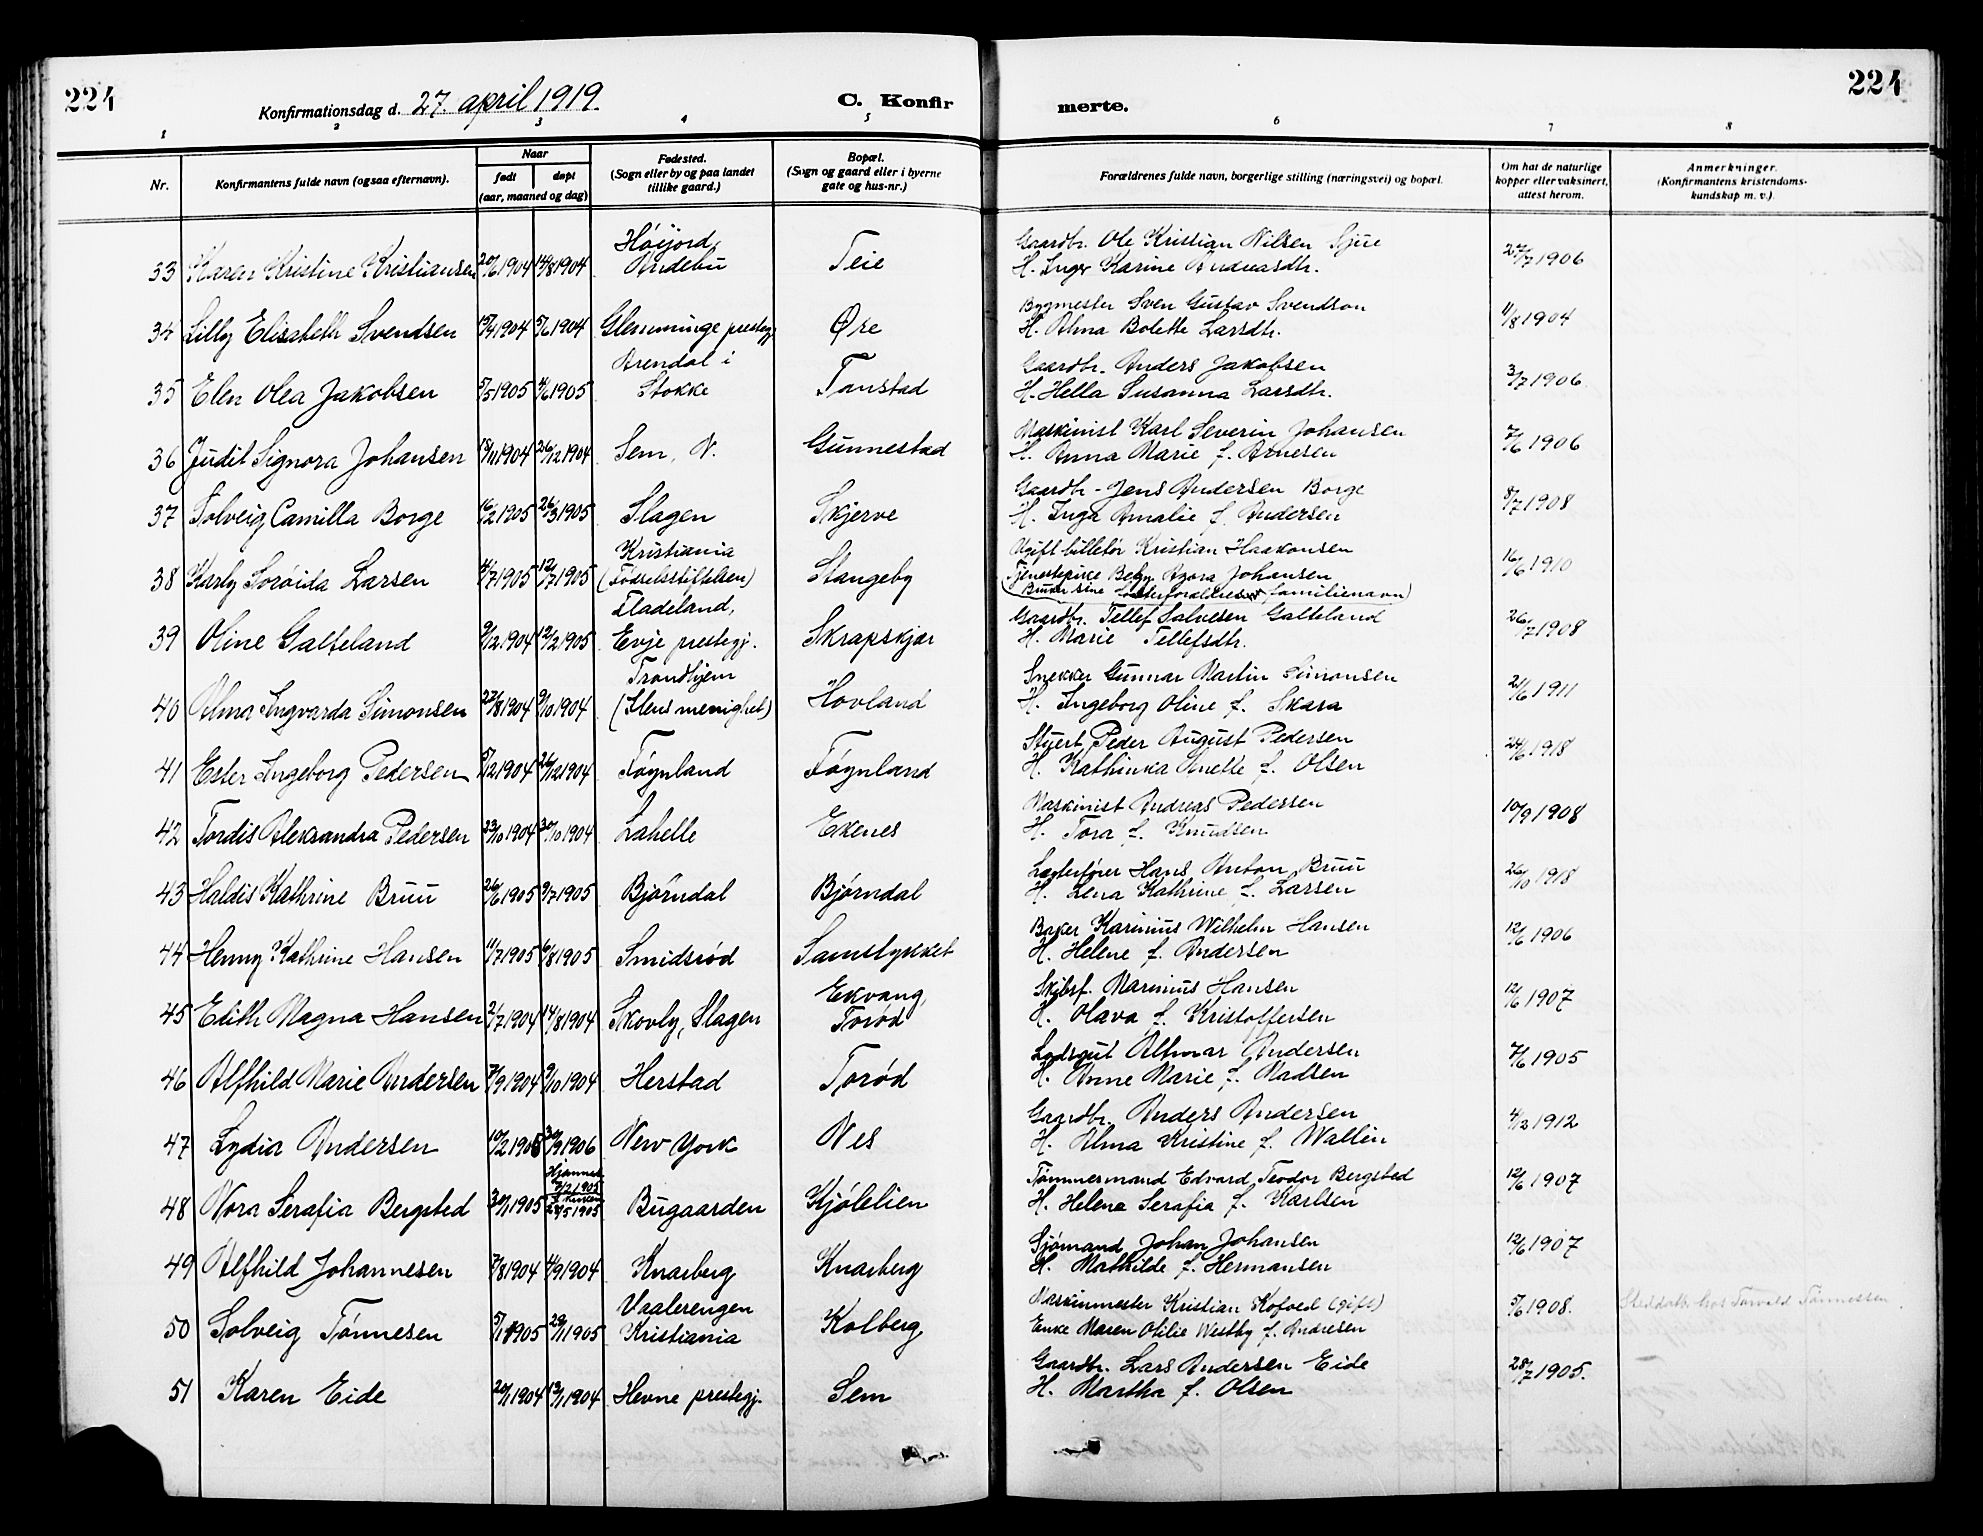 224
Konfirmationsdag d. 27. april 1919.
C. Konfir
merte.
224
1 2 3 4 5 6 7 8
Nr.
Konfirmantens fulde navn (ogsaa efternavn).
Naar
født døpt
(aar, maaned og dag)
Fødested.
(Sogn eller by og paa landet
tillike gaard.)
Bopæl.
(Sogn og gaard eller i byerne
gate og hus-nr.)
Forældrenes fulde navn, borgerlige stilling (næringsvei) og bopæl.
Om hat de naturlige
kopper eller vaksinert,
attest herom.
Anmerkninger.
(Konfirmantens kristendoms-
kundskap m. v.).
Høijord, Gaardbr. Ole Kristian Nilsen
33 Karen Kristine Kristiansen 20/6 1904 14/8 1904 Andebu Teie H. Inger Karine Andreasdtr. 27/7 1906
Bygmester Sven Gustav Svendson
34 Lilly Elisabeth Svendsen 15/4 1904 5/6 1904 Glemminge prestegj. Øre H. Alma Bolette Larsdtr. 11/8 1904
Arendal i Gaardbr. Anders Jakobsen
35 Elen Olea Jakobsen 5/5 1905 4/6 1905 Stokke Tanstad H. Hella Susanna Larsdtr. 3/7 1906.
Maskinist Karl Severin Johansen
36 Judit Signora Johansen 18/11 1904 26/12 1904 Sem, N. Gunnestad H. Anna Marie f. Arnesen 7/6 1906
Gaardbr. Jens Andersen Borge
37 Solveig Camilla Borge 16/2 1905 26/3 1905 Slagen Skjerve H. Inga Amalie f. Andersen 8/7 1908
Kristiania Ugift billetør Kristian Haakonsen
38 Karly Soroida Larsen 4/7 1905 12/7 1905 (Fødselsstiftelsen) Stangeby Tjenestepike Johansen 16/6 1910
(Bruker sine fosterforældres familienavn)
Fladeland, Gaardbr. Tellef Salvesen Galteland
39 Oline Galteland 9/12 1904 12/2 1905 Evje prestegj. Skrapskjær H. Marie Tellefsdtr. 26/7 1908
Trondhjem Snekker Gunnar Martin Simonsen
40 Alma Ingvarda Simonsen 27/8 1904 9/10 1904 (Ilens menighet) Hovland H. Ingeborg Oline f. Skara 21/6 1911
Stuert Peder August Pedersen
41 Ester Ingeborg Pedersen 5/12 1904 26/12 1904 Føynland Føynland H. Kathinka Anette f. Olsen 24/6 1918
Maskinist Andreas Pedersen
42 Tordis Aleksandra Pedersen 23/10 1904 30/10 1904 Labelle Ekenes H. Tora f. Knudsen 10/9 1908
Lægterfører Hans Anton Bruu
43 Haldis Kathrine Bruu 26/6 1905 9/7 1905 Bjørndal Bjørndal H. Lena Kathrine f. Larsen 26/10 1918
Baker Karinius Wilhelm Hansen
44 Henny Kathrine Hansen 11/7 1905 6/8 1905 Smidsrød Samstykket H. Helene f. Andersen 12/6 1906
Ekvang, Skibsf. Marinius Hansen
45 Edith Magna Hansen 2/7 1904 14/8 1904 Skovly, Slagen Torød H. Olava f. Kristoffersen 12/6 1907
Andersen
46 Alfhild Marie Andersen 7/9 1904 9/10 1904 Herstad Torød H. Anne Marie f. Madsen 7/6 1905
Gaardbr. Anders Andersen
47 Lydia Andersen 10/2 1905 30/9 1906 New York Nes H. Alma Kristine f. Wallin 4/12 1912
Hjemmed. Tømmermand Edvard Teodor Bergsted
48 Nora Serafia Bergsted 30/1 1905 3/2 1905 i kirken 28/5 1905 Bugaarden Kjølelien H. Helena Serafia f. Karlsen 12/6 1907
Sjømand Johan Johansen
49 Alfhild Johannesen 7/8 1904 4/9 1904 Knarberg Knarberg H. Mathilde f. Hermansen 12/6 1907
Vaalerengen Maskinmester Kristian Kofoed (gift)
50 Solveig Tønnesen 5/1 1905 29/1 1905 Kristiania Kolberg Enke Maren Otilie Westby f. Andresen 5/6 1908. Steddatt. hos Torvald Tønnessen
Gaardbr. Lars Andersen Eide
51 Karen Eide 20/1 1904 13/1 1904 Hevne prestegj. Sem H. Martha f. Olsen 28/7 1905.